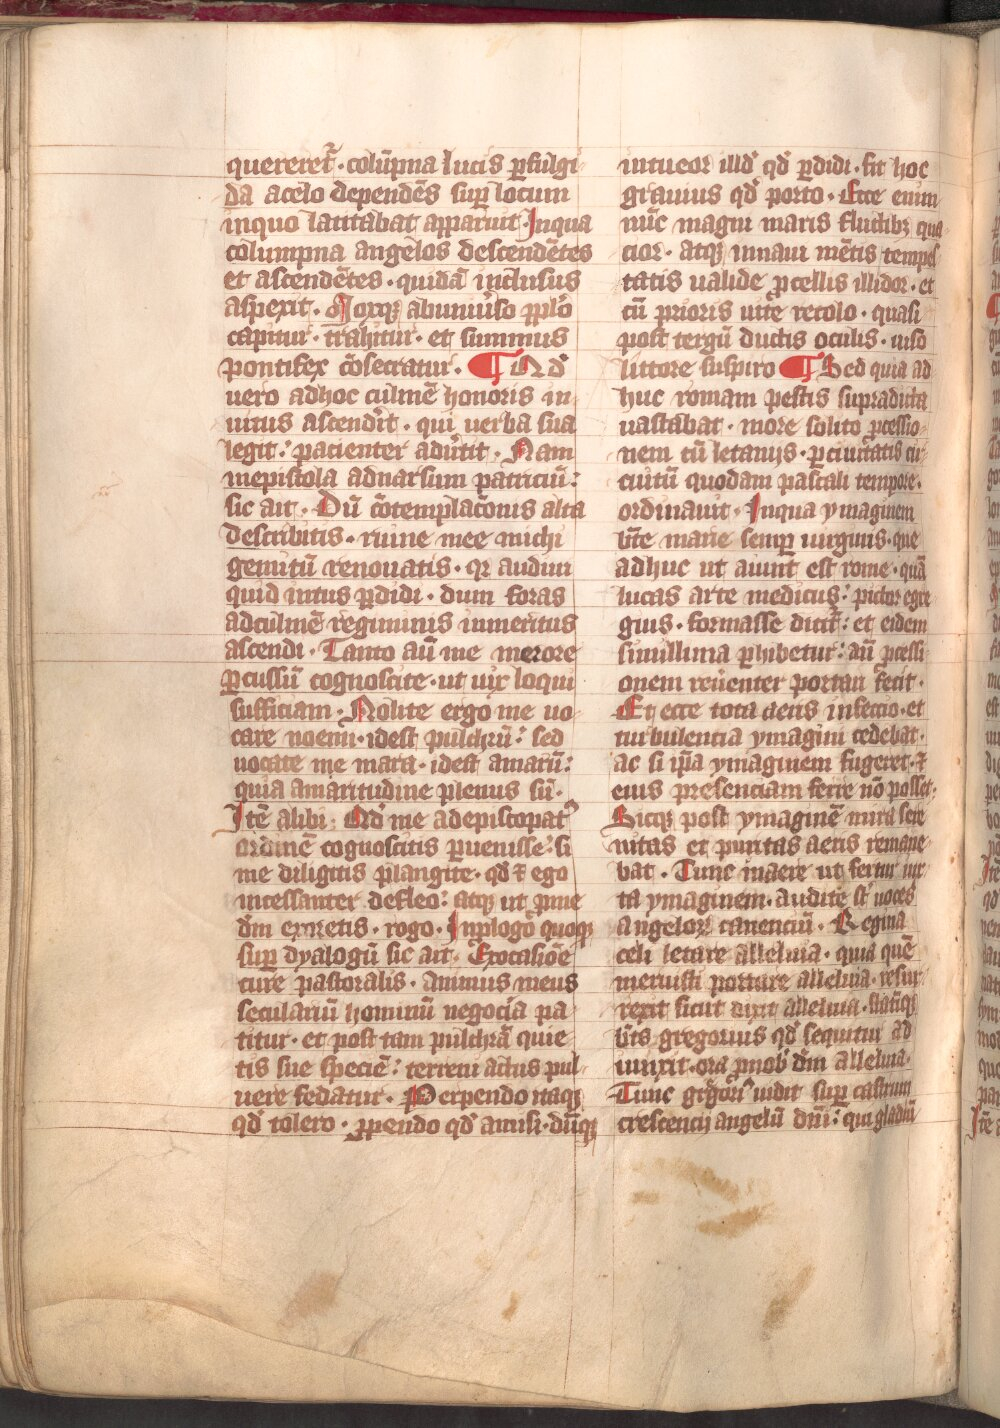 quereret᷑ · colūpna lucis ꝑfulgi
da acelo dependēs suꝑ locum
inquo latitabat apparuit · Inqua
columpna angelos descendētes
et ascendētes · quidā inclusus
aspexit · Moxqꝫ abuniu̓so ppl̓o
capitur · trahitur · et summus
pontifex ɔ̄secratur · ¶ Qd̓
uero adhoc culmē honoris in
uitus ascendit · qui uerba sua
legit : pacienter adu̓tit · Nam
inepistola adnarsum patriciū :
sic ait · Dū ɔ̄templac̄onis alta
describitis · ruine mee michi
gemitū renouatis · qꝛ audiui
quid intus ꝑdidi · dum foras
adculmē regiminis inmeritus
ascendi · Tanto aūt me merore
ꝑcussū cognoscite · ut uix loqui
sufficiam · Nolite ergo me uo
care noemi · idest pulchrū : sed
uocate me mara · idest amarū :
quia amaritudine plenus sū ·
Itē alibi · Qd̓ me adepiscopat᷒
ordinē cognoscitis ꝑuenisse : si
me diligitis plangite · qd̓ ⁊ ego
incessanter defleo : atqꝫ ut ꝓme
dm̄ exoretis · rogo · Inplogo quoqꝫ
suꝑ dyalogū sic ait · Exocasiōe
cure pastoralis · animus meus
seculariū hominū negocia pa
titur · et post tam pulchrā quie
tis sue speciē : terreni actus pul
uere fedatur · Perpendo itaqꝫ
qd̓ tolero · ꝑpendo qd̓ amisi · dūqꝫ
intueor illd̓ qd̓ ꝑdidi · fit hoc
grauius qd̓ porto · Ecce enim
nūc magni maris fluctibꝫ qua
cior · atqꝫ innaui mētis tempes
tatis ualide ꝓcellis illidor · et
cū prioris uite recolo · quasi
post tergū ductis oculis · uiso
littore suspiro ¶ Sed quia ad
huc romam pestis supradicta
uastabat · more solito ꝓcessio
nem cū letanijs · ꝑ ciuitatis cir
cuitū quodam pascali tempore ·
ordinauit · Inqua ymaginem
bt̄e marie semꝑ uirginis · que
adhuc ut aiunt est rome · quā
lucas arte medicus : pictor egre
gius · formasse dicit᷑ : et eidem
simillima ꝑhibetur : añ ꝓcessi
onem reu̓enter portari fecit ·
Et ecce tota aeris infectio · et
turbulencia ymagini cedebat ·
ac si ip̄a ymaginem fugeret · ⁊
eius presenciam ferre nō posset ·
Sicqꝫ post ymaginē mira sere
nitas et puritas aeris remane
bat · Tunc inaere ut fertur iux
ta ymaginem · audite st̄ uoces
angeloꝝ canenciū · Regina
celi letare alleluia · quia quē
meruisti portare alleluia · resur
rexit sicut dixit alleluia · statīqꝫ
bt̄s gregorius qd̓ sequitur ad
iunxit · ora ꝓnob̓ dm̄ alleluia ·
Tunc gr̓gori᷒ uidit suꝑ castrum
crescencij angelū dn̄i : qui gladiū